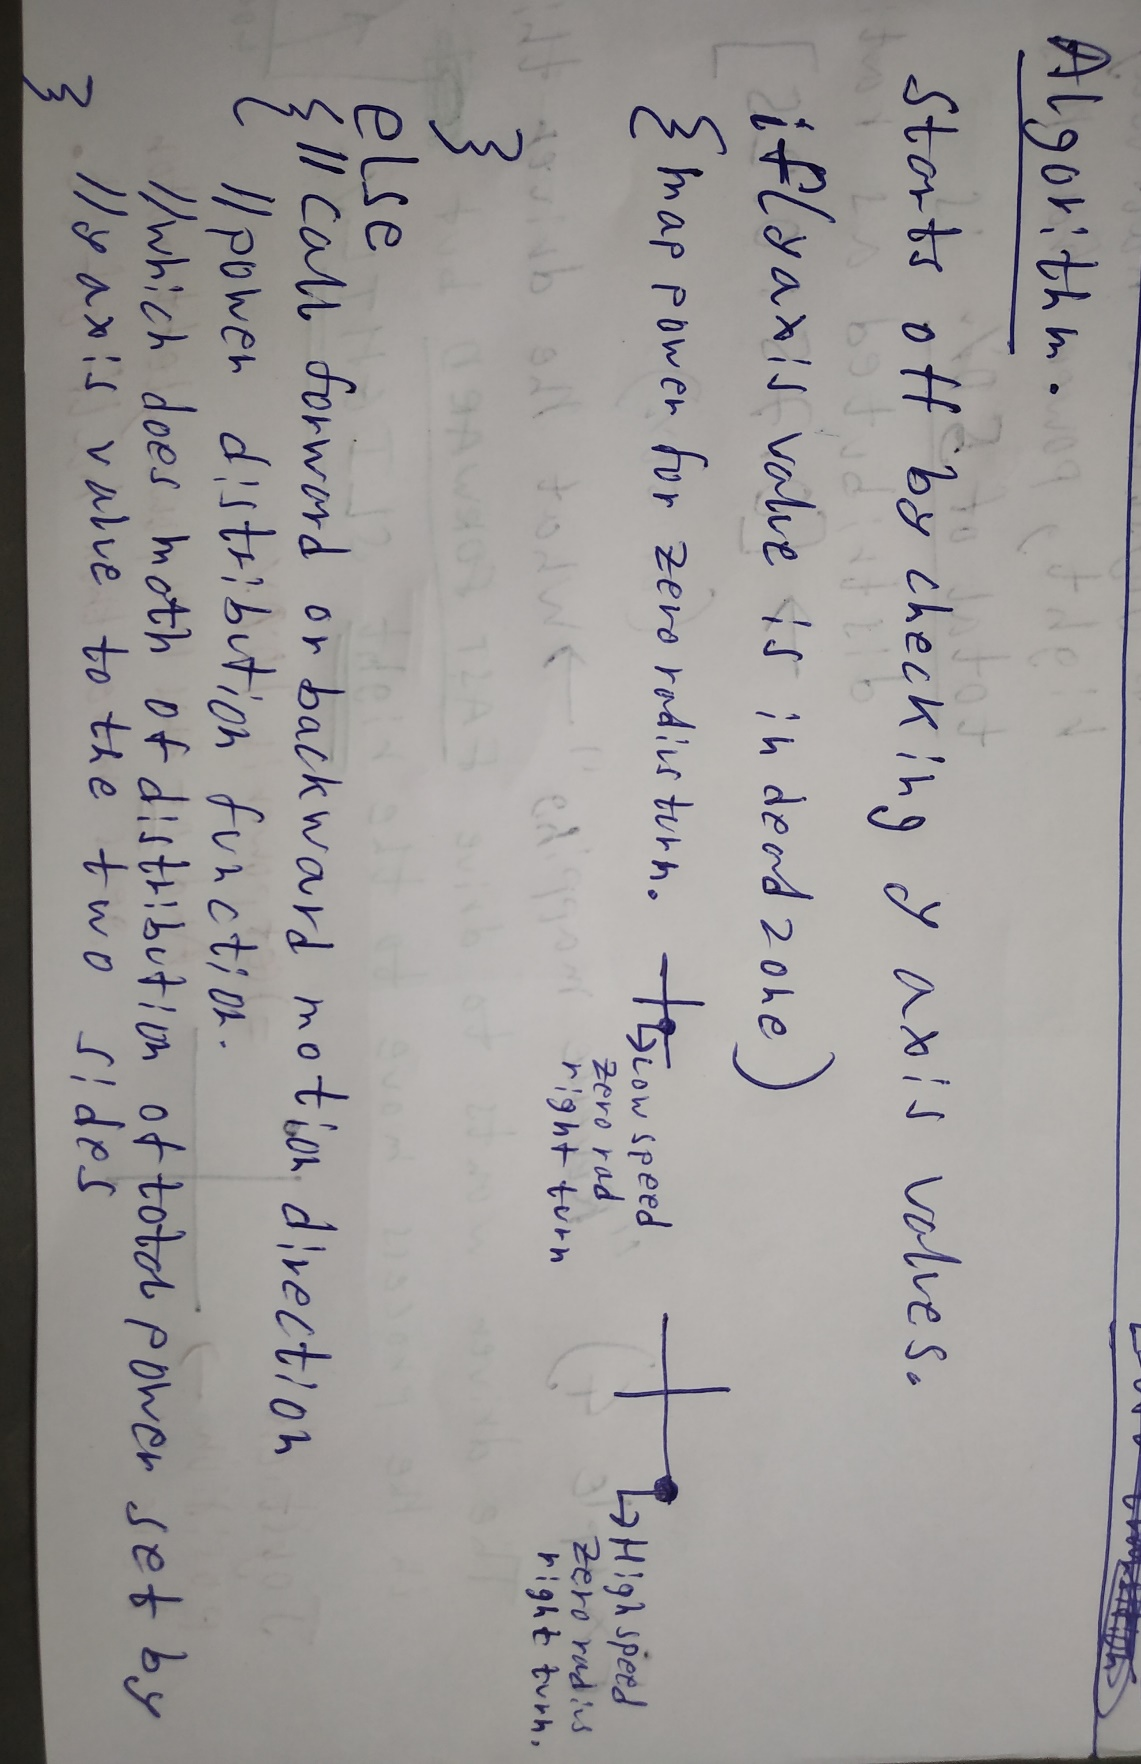 Algorithm.
Starts off by checking y axis values.
if(y axis value is in dead zone)
{ map power for zero radius turn.
Low speed
zero rad
right turn
High speed
zero radius
right turn.
}
else
{ // call forward or backward motion direction
// power distribution function.
// which does math of distribution of total power set by
// y axis value to the two sides
}